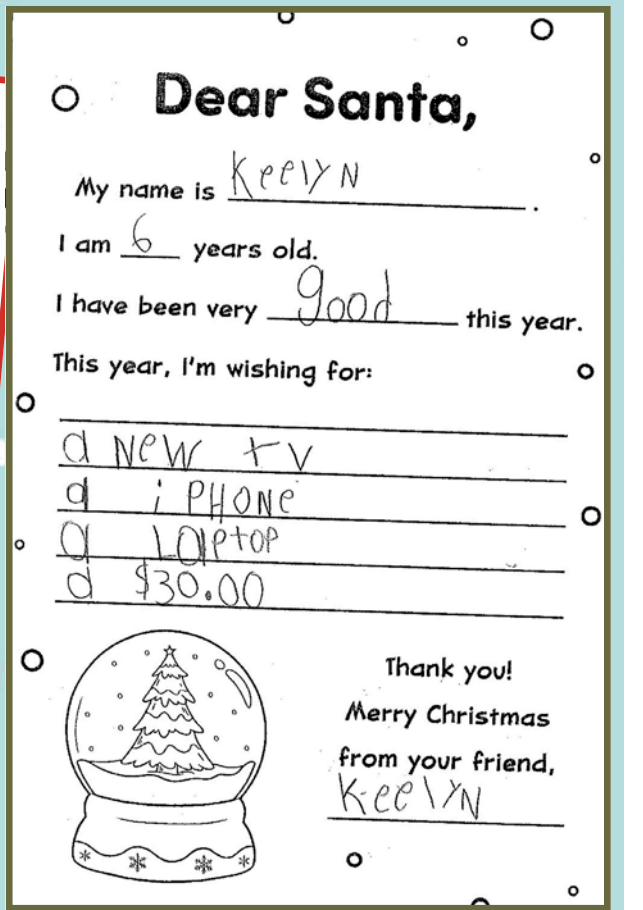 Dear Santa,
My name is Keelyn.
I am 6 years old.
I have been very good this year.
This year, I'm wishing for:
a New tv
a iPHONe
a Laptop
a $30.00
Thank you!
Merry Christmas
from your friend,
Keelyn